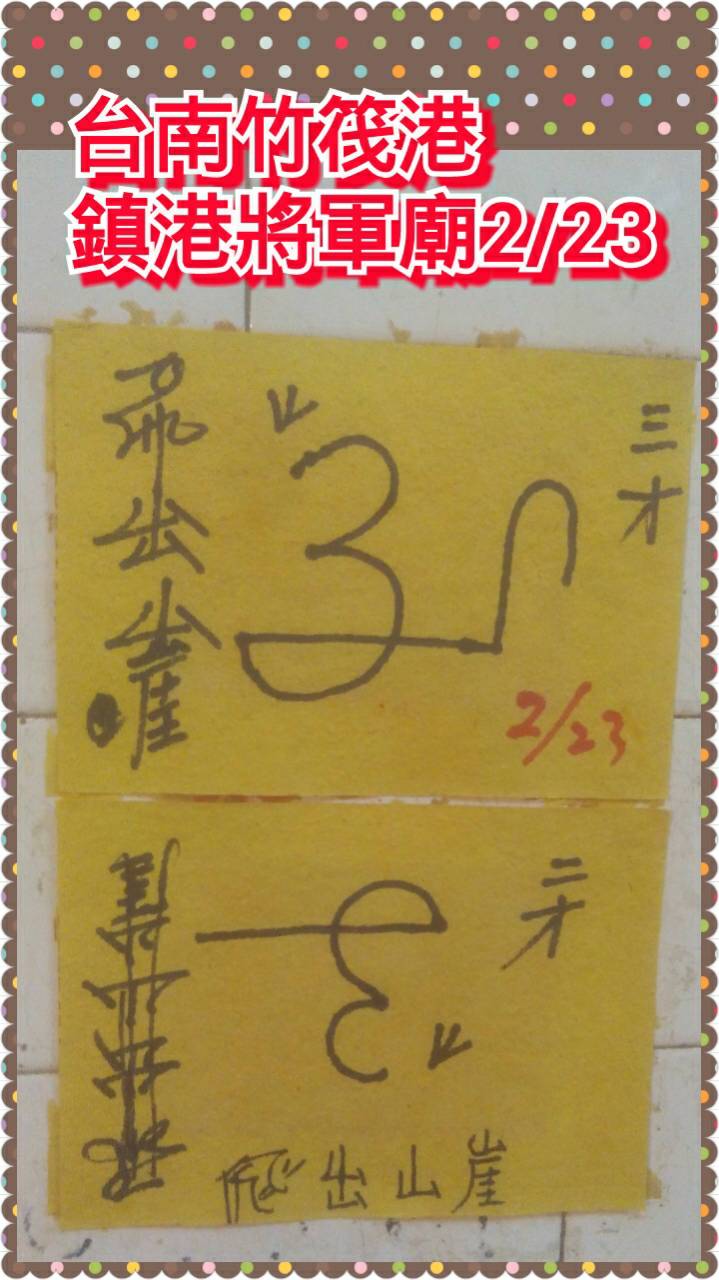 台南竹筏港
鎮港將軍廟2/23
三才
飛出山崖
2/23
二才
飛出山崖